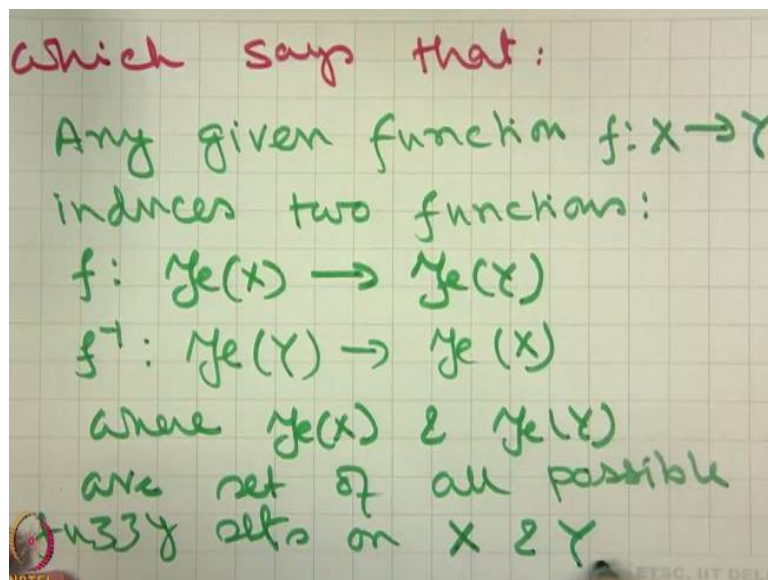 which says that:
Any given function f: X → Y
induces two functions:
f: ℱ(X) → ℱ(Y)
f⁻¹: ℱ(Y) → ℱ(X)
where ℱ(X) & ℱ(Y)
are set of all possible
fuzzy sets on X & Y
NPTEL
ETSC, IIT DEL